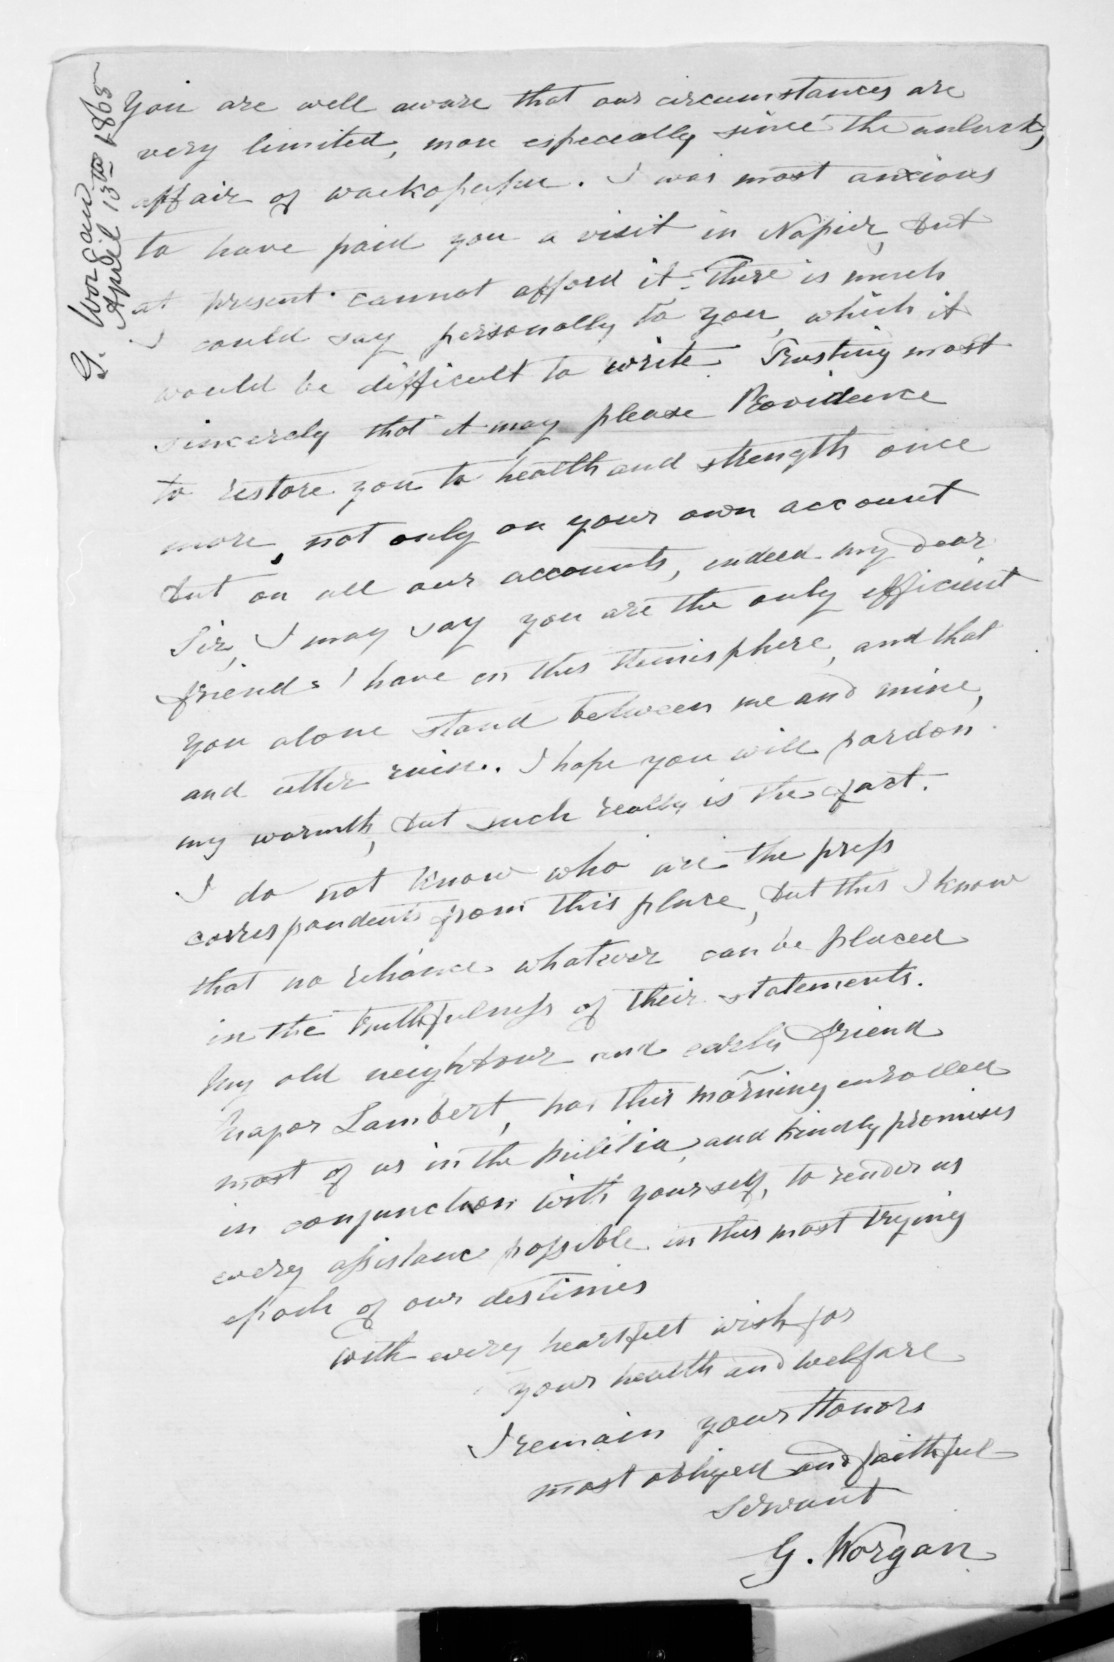 G. Worgan
April 13th 1865
You are well aware that our circumstances are
very limited, more especeally since the unlucky
affair of waekopupu. I was most anxious
to have paid you a visit in Napier, but
at present cannot afford it - There is much
I could say personally to you, which it
would be difficult to write. Trusting most
sincerely that it may please Providence
to restore you to health and strength once
more, not only on your own account
but on all our accounts, indeed my dear
Sir, I may say you are the only efficient
friend I have in this Hemisphere, and that
you alone stand between me and mine,
and utter ruin. I hope you will pardon
my warmth, but such really is the fact.
I do not know who are the press
correspondents from this place, but this I know
that no reliance whatever can be placed
in the truthfulness of their statements.
My old neighbour and early friend
Major Lambert, has this morning enrolled
most of us in the Militia, and kindly promises
in conjunction with yourself, to render us
every assistance possible in this most trying
epoch of our destinies
With every heartfelt wish for
your health and welfare
I remain your Honors
most obliged and faithful
servant
G. Worgan